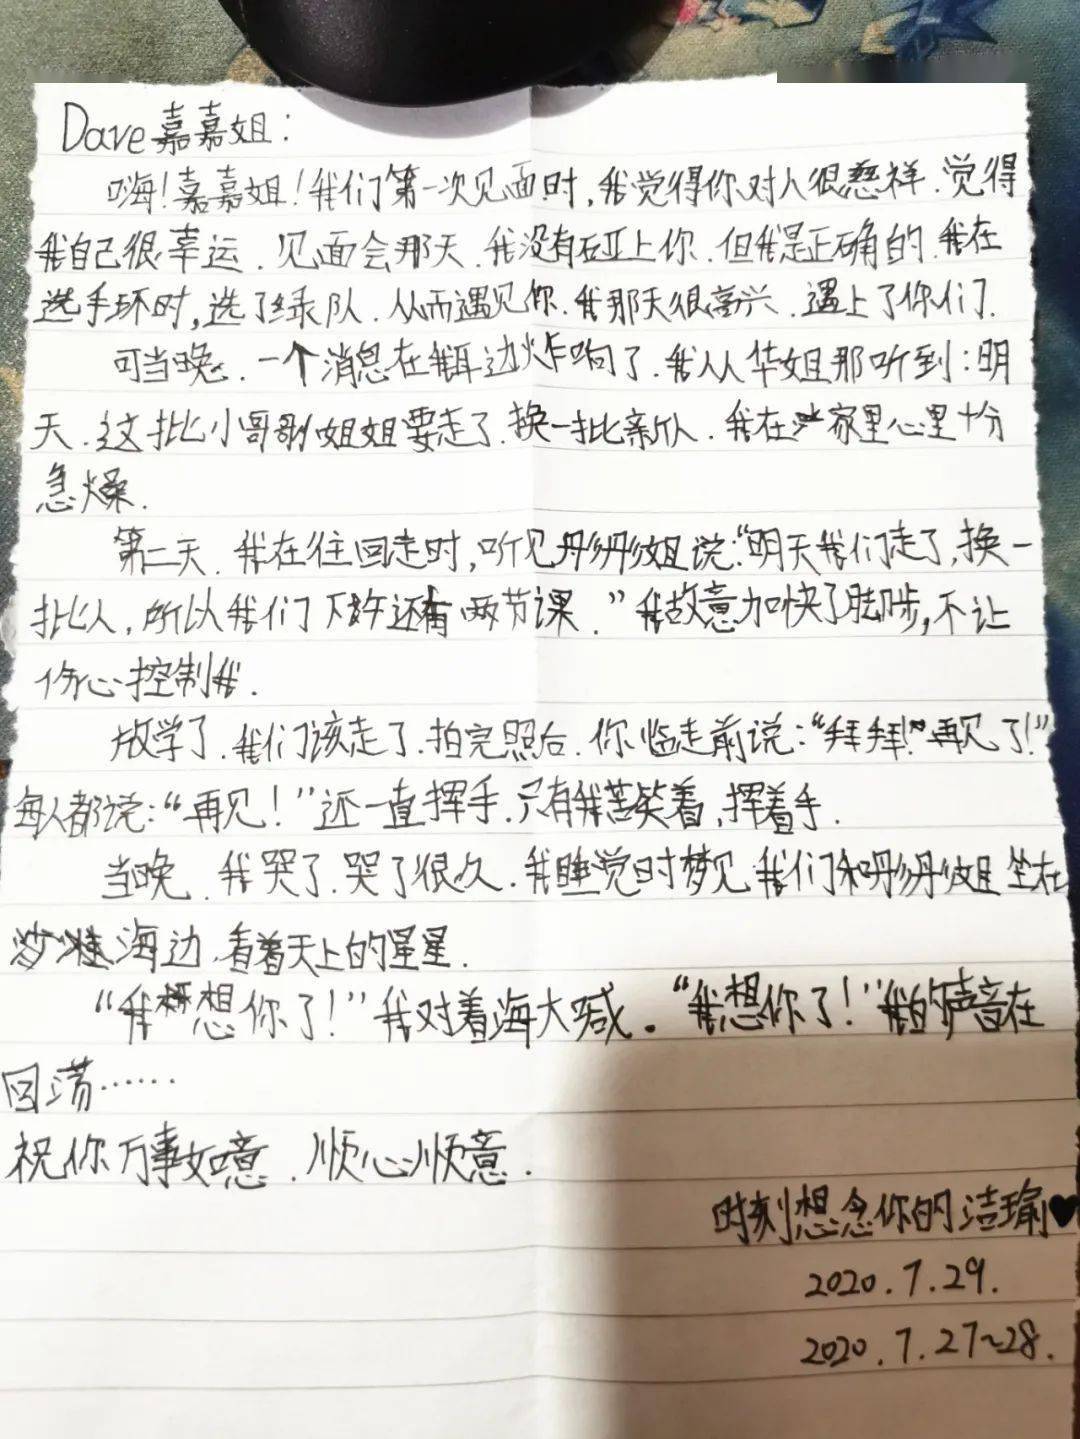 Dave嘉嘉姐：
嗨！嘉嘉姐！我们第一次见面时，我觉得你对人很慈祥．觉得
我自己很幸运．见面会那天．我没有碰上你．但我是正确的．我在
选手环时，选了绿队．从而遇见你．我那天很高兴．遇上了你们．
可当晚．一个消息在我耳边炸响了．我从华姐那听到：明
天．这批小哥哥小姐姐要走了．换一批新人．我在家里心里十分
急燥．
第二天．我在往回走时，听见彤彤姐说：“明天我们走了，换一
批人，所以我们下午还有两节课．”我故意加快了脚步，不让
伤心控制我．
放学了．我们该走了．拍完照后．你临走前说：“拜拜！再见了！”
每人都说：“再见！”还一直挥手．只有我苦笑着，挥着手．
当晚．我哭了．哭了很久．我睡觉时梦见我们和彤彤姐坐在
海边，看着天上的星星．
“我想你了！”我对着海大喊。“我想你了！”我的声音在
回荡……
祝你万事如意．顺心顺意．
时刻想念你的洁瑜♥
2020.7.29.
2020.7.27~28.